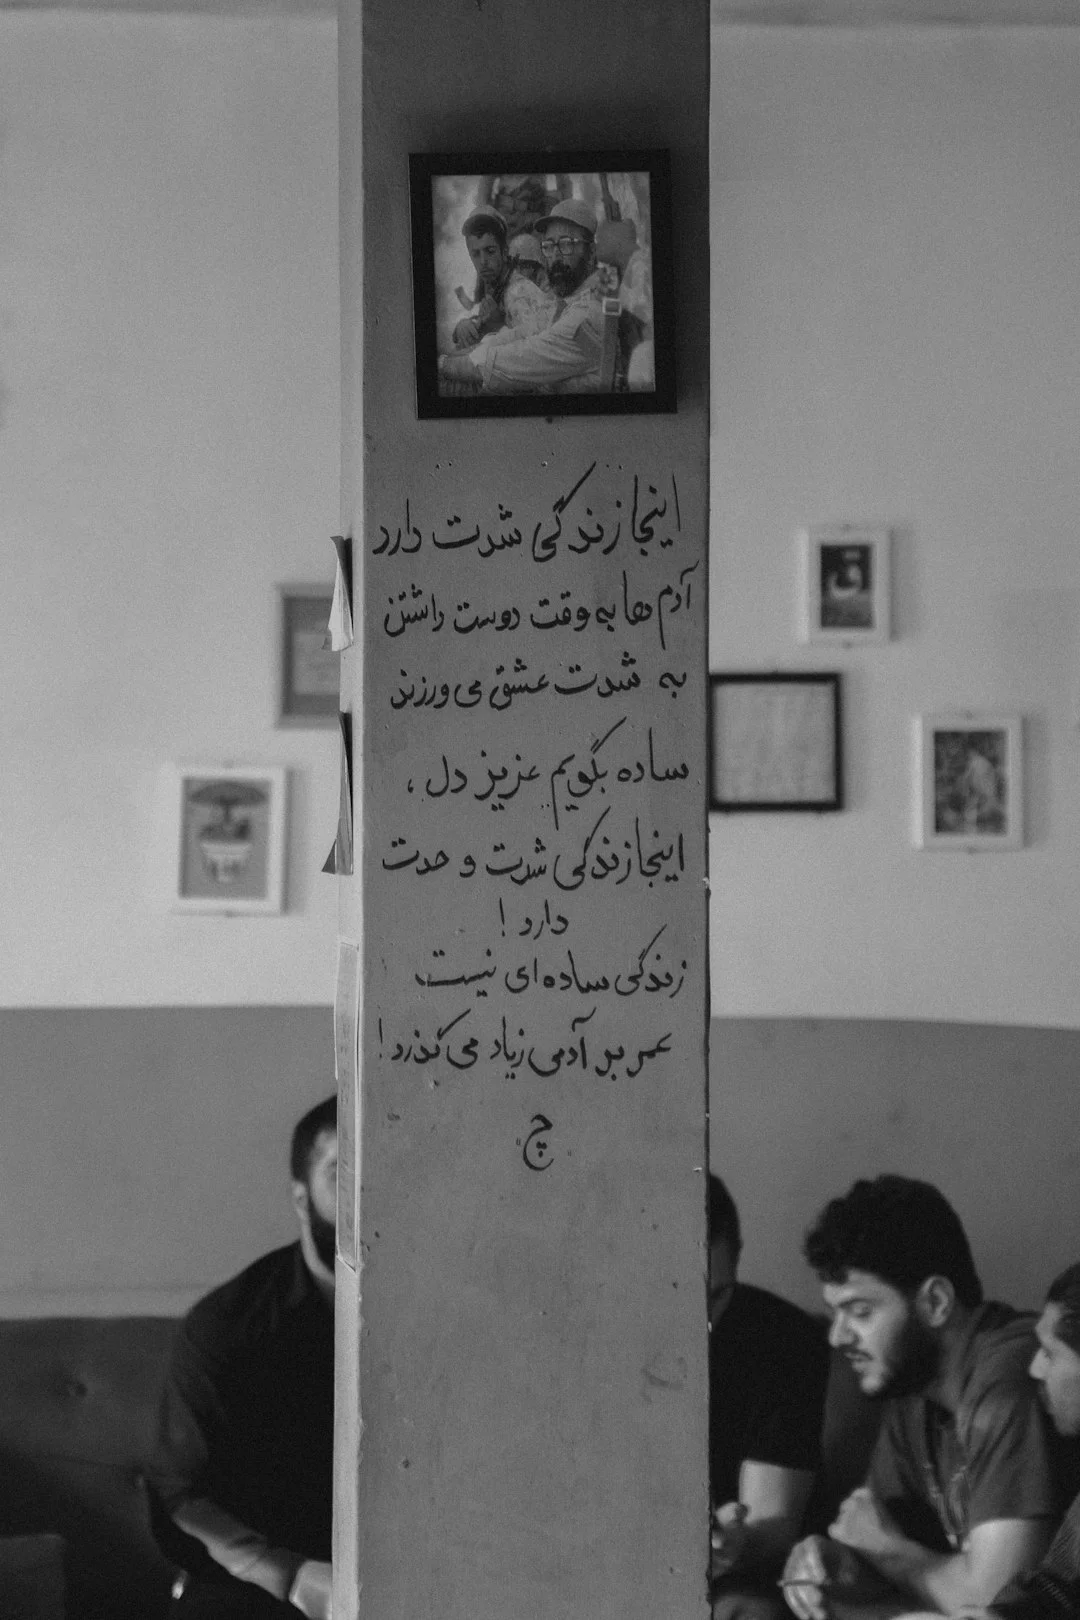 اینجا زندگی شدت دارد
آدم ها به وقت دوست داشتن
به شدت عشق می ورزند
ساده بگویم عزیز دل ،
اینجا زندگی شدت و حدت
دارد !
زندگی ساده ای نیست
عمر بر آدمی زیاد می گذرد !
چ